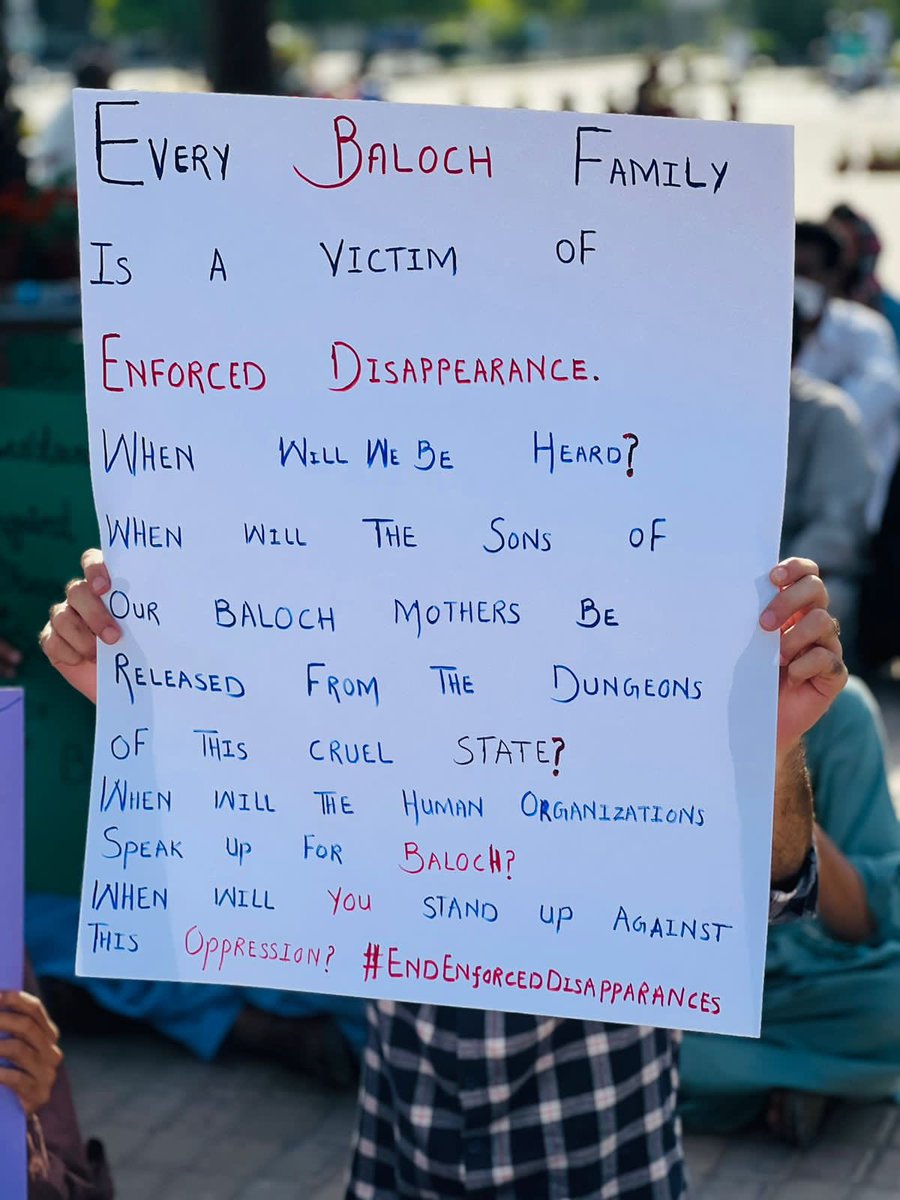 EVERY BALOCH FAMILY
IS A VICTIM OF
ENFORCED DISAPPEARANCE.
WHEN WILL WE BE HEARD?
WHEN WILL THE SONS OF
OUR BALOCH MOTHERS BE
RELEASED FROM THE DUNGEONS
OF THIS CRUEL STATE?
WHEN WILL THE HUMAN ORGANIZATIONS
SPEAK UP FOR BALOCH?
WHEN WILL YOU STAND UP AGAINST
THIS OPPRESSION? #ENDENfORCEDDISAPPARANCES